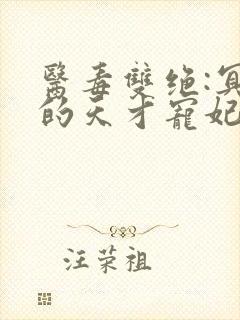 醫毒雙绝:冥
的天才寵妃
汪荣祖